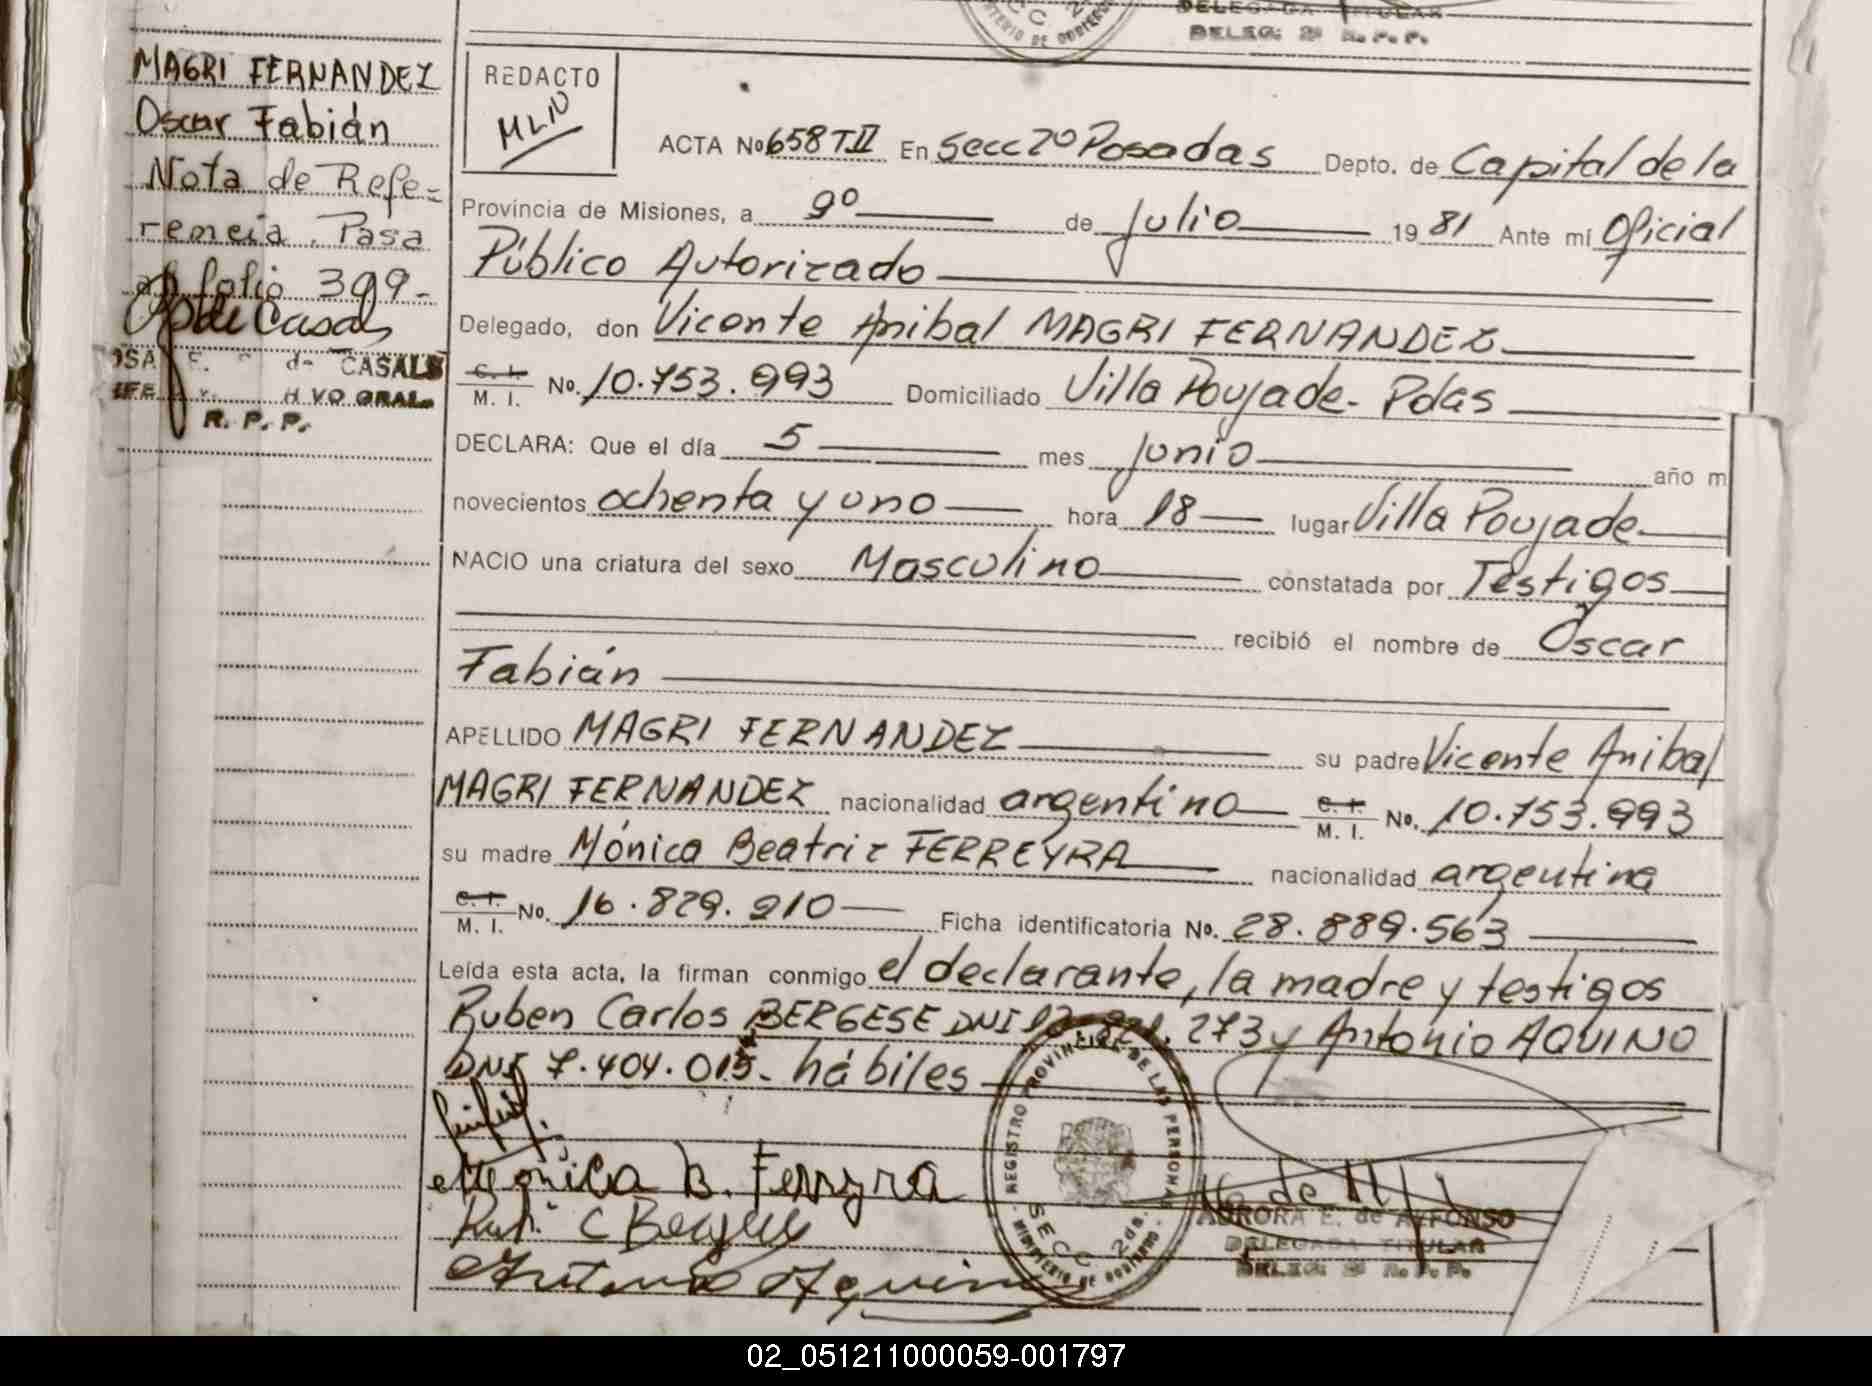 DELEGADA TITULAR
DELEG: 2ª R.P.P.
MAGRI FERNANDEZ
Oscar Fabián
Nota de Refe-
rencia. Pasa
al folio 399-
de CASALS
R. P. P.
REDACTO
MLN
ACTA Nº 658 T.II En Secc 2º Posadas Depto. de Capital de la
Provincia de Misiones, a 9º de julio 19 81 Ante mí Oficial
Público Autorizado
Delegado, don Vicente Anibal MAGRI FERNANDEZ
C. I. M. I. No. 10.753.993 Domiciliado Villa Poujade- Pdas
DECLARA: Que el día 5 mes junio año m
novecientos ochenta y uno hora 18 lugar Villa Poujade
NACIO una criatura del sexo Masculino constatada por Testigos
recibió el nombre de Oscar
Fabián
APELLIDO MAGRI FERNANDEZ su padre Vicente Anibal
MAGRI FERNANDEZ nacionalidad argentino C. I. M. I. No. 10.753.993
su madre Mónica Beatriz FERREYRA nacionalidad argentina
C. I. M. I. No. 16.829.210 Ficha identificatoria Nº. 28.889.563
Leída esta acta, la firman conmigo el declarante, la madre y testigos
Ruben Carlos BERGESE DNI .273 y Antonio AQUINO
DNI 7.404.015- hábiles
Mónica B. Ferreyra
C Bergese
Antonio Aquino
REGISTRO PROVINCIAL DE LAS PERSONAS
SECC 2da.
MINISTERIO DE GOBIERNO
AURORA E. de ALFONSO
DELEGADA TITULAR
DELEG: 2ª R.P.P.
02_051211000059-001797